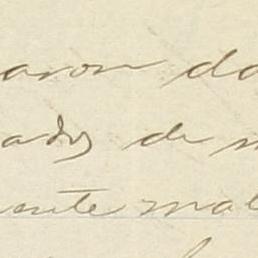 aron da
ados de m
ente mal